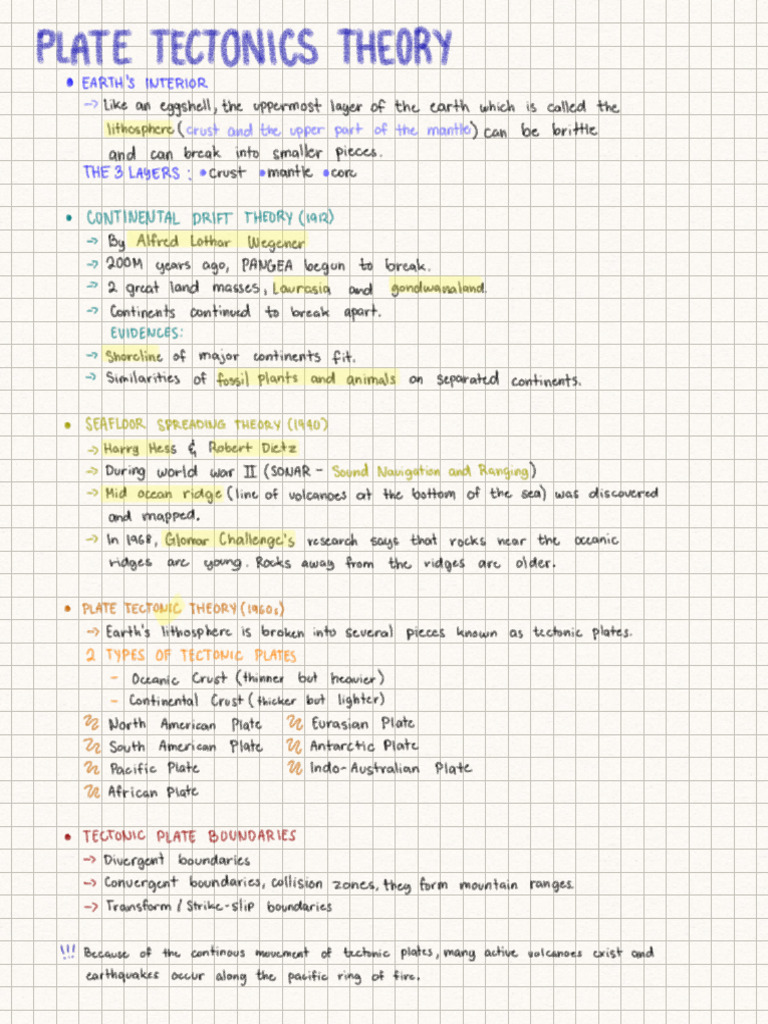 PLATE TECTONICS THEORY
• EARTH'S INTERIOR
→ Like an eggshell, the uppermost layer of the earth which is called the
lithosphere (crust and the upper part of the mantle) can be brittle
and can break into smaller pieces.
THE 3 LAYERS : •Crust •mantle •core
• CONTINENTAL DRIFT THEORY (1912)
→ By Alfred Lothar Wegener
→ 200M years ago, PANGEA begun to break.
→ 2 great land masses, Laurasia and gondwanaland.
→ Continents continued to break apart.
EVIDENCES:
→ Shoreline of major continents fit.
→ Similarities of fossil plants and animals on separated continents.
• SEAFLOOR SPREADING THEORY (1940)
→ Harry Hess & Robert Dietz
→ During world war II (SONAR - Sound Navigation and Ranging)
→ Mid ocean ridge (line of volcanoes at the bottom of the sea) was discovered
and mapped.
→ In 1968, Glomar Challenge's research says that rocks near the oceanic
ridges are young. Rocks away from the ridges are older.
• PLATE TECTONIC THEORY (1960s)
→ Earth's lithosphere is broken into several pieces known as tectonic plates.
2 TYPES OF TECTONIC PLATES
- Oceanic Crust (thinner but heavier)
- Continental Crust (thicker but lighter)
North American Plate Eurasian Plate
South American Plate Antarctic Plate
Pacific Plate Indo-Australian Plate
African Plate
• TECTONIC PLATE BOUNDARIES
→ Divergent boundaries
→ Convergent boundaries, collision zones, they form mountain ranges.
→ Transform / Strike-slip boundaries
!!! Because of the continous movement of tectonic plates, many active volcanoes exist and
earthquakes occur along the pacific ring of fire.